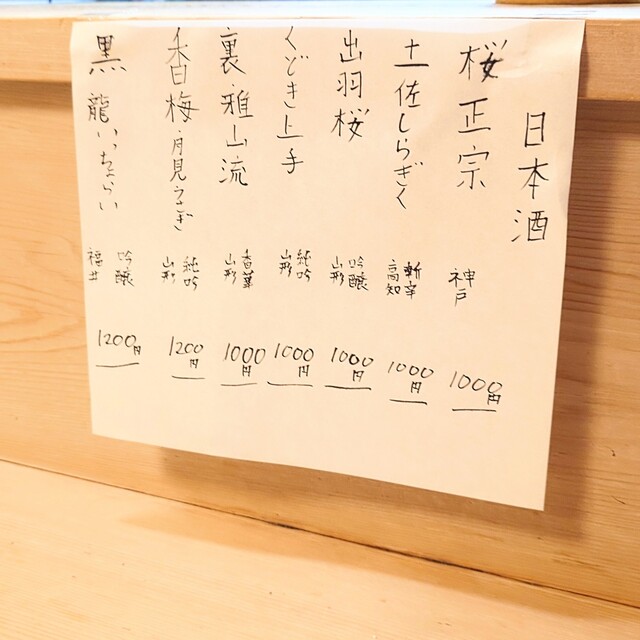 日本酒
桜正宗 神戸 1000円
土佐しらぎく 斬辛 高知 1000円
出羽桜 吟醸 山形 1000円
くどき上手 純吟 山形 1000円
裏・雅山流 香華 山形 1000円
香梅・月見うさぎ 純吟 山形 1200円
黒龍いっちょらい 吟醸 福井 1200円